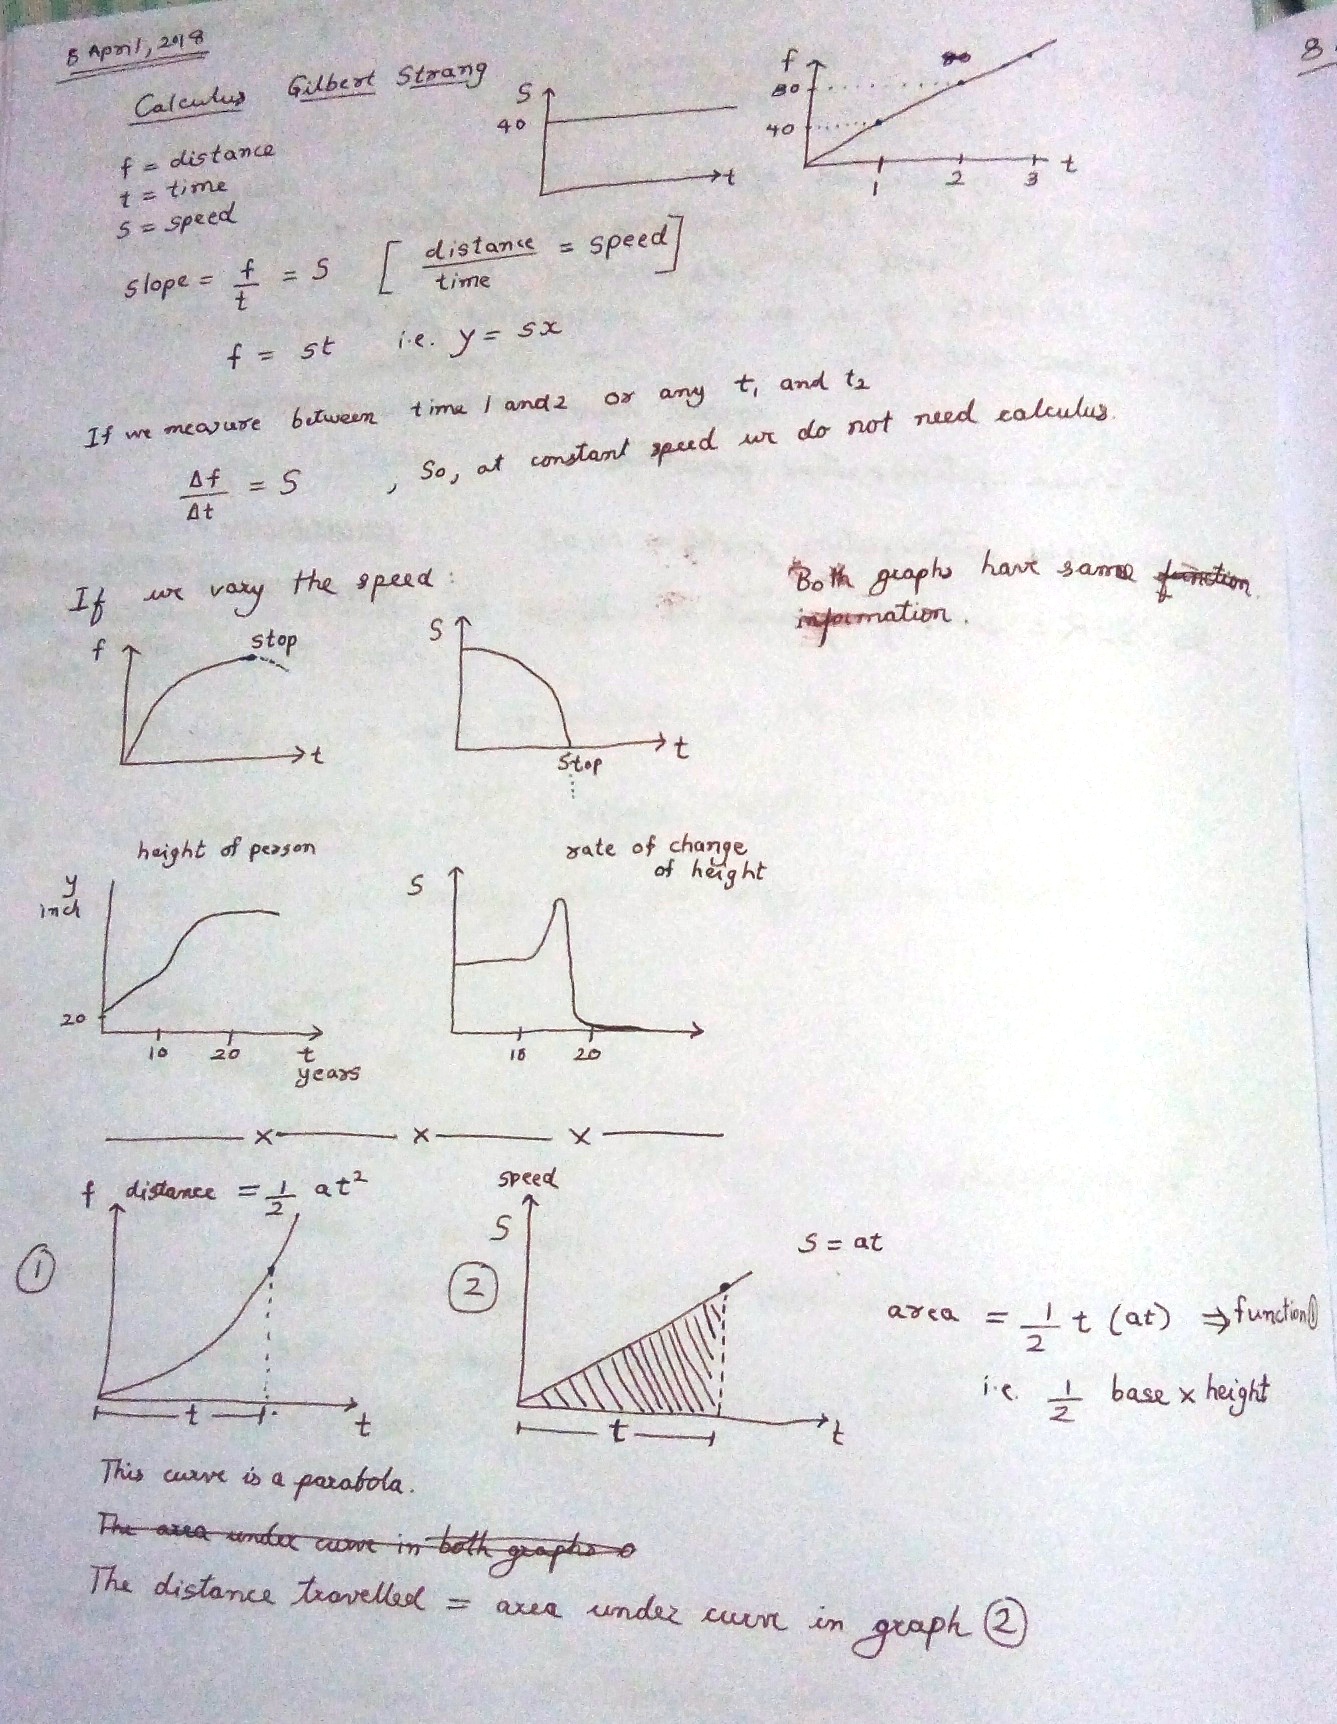 8 April, 2018
Calculus Gilbert Strang
S
40
t
f
80
80
40
1 2 3 t
f = distance
t = time
S = speed
slope = f/t = S [ distance/time = speed ]
f = st i.e. y = sx
If we measure between time 1 and 2 or any t₁ and t₂
Δf/Δt = S , So, at constant speed we do not need calculus.
If we vary the speed :
Both graphs have same function
information.
f
stop
t
S
stop
t
height of person
y
inch
20
10 20 t
years
rate of change
of height
S
18 20
x x x
f distance = 1/2 at²
1
t
t
speed
S
2
t
t
S = at
area = 1/2 t (at) ⇒ function 1
i.e. 1/2 base x height
This curve is a parabola.
The area under curve in both graphs
The distance travelled = area under curve in graph 2
8